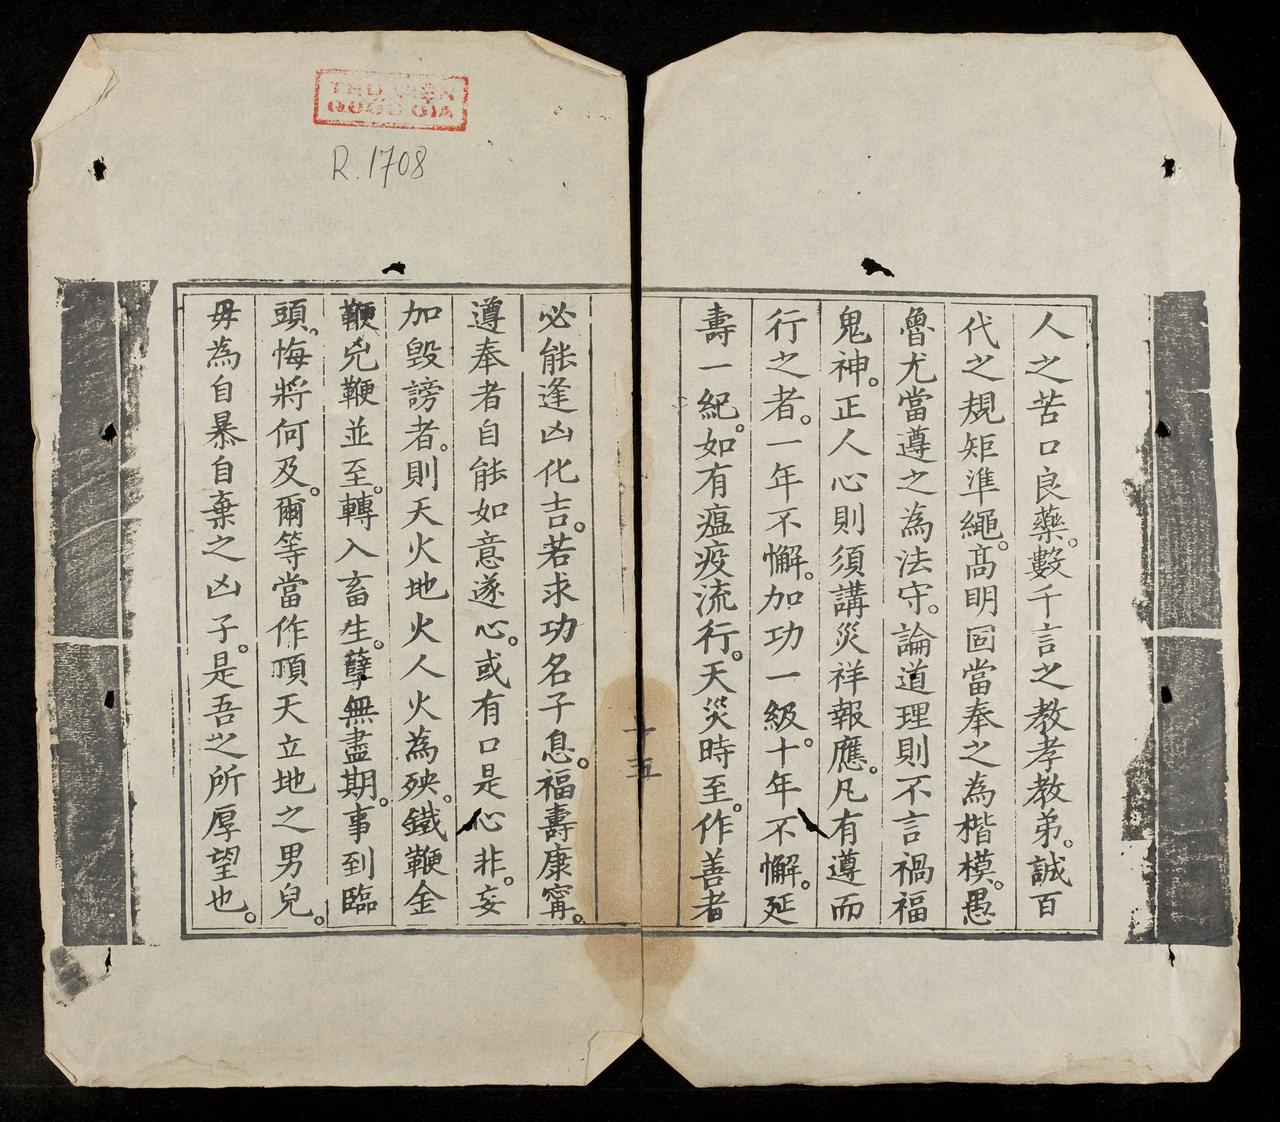 THƯ VIỆN
QUỐC GIA
R.1708
人之苦口良藥。數千言之教孝教弟。誠百
代之規矩準繩。高明固當奉之為楷模。愚
魯尤當遵之為法守。論道理則不言禍福
鬼神。正人心則須講災祥報應。凡有遵而
行之者。一年不懈。加功一級。十年不懈。延
壽一紀。如有瘟疫流行。天災時至。作善者
十五
必能逢凶化吉。若求功名子息。福壽康寧。
遵奉者自能如意遂心。或有口是心非。妄
加毀謗者。則天火地火人火為殃。鐵鞭金
鞭兇鞭並至。轉入畜生。孽無盡期。事到臨
頭。悔將何及。爾等當作頂天立地之男兒。
毋為自暴自棄之凶子。是吾之所厚望也。